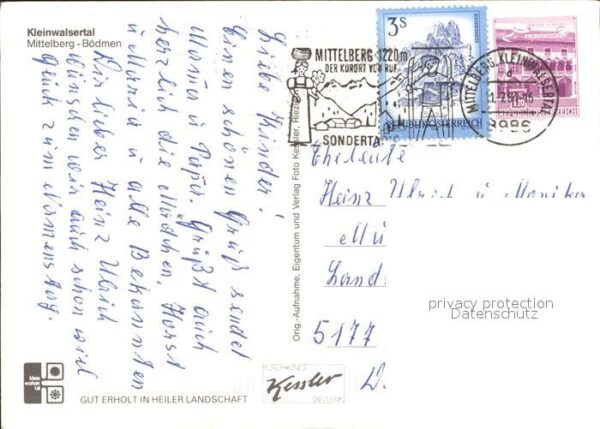 Kleinwalsertal
Mittelberg - Bödmen
Liebe Kinder!
Einen schönen Gruß sendet
Mama u Papa. Grüßt auch
herzlich die Mädchen, Horst
u Maria u alle Bekannten
Nun lieber Heinz Ulrich
wünschen wir auch schon viel
Glück zum Namenstag.
GUT ERHOLT IN HEILER LANDSCHAFT
klein
walser
tal
Orig.-Aufnahme, Eigentum und Verlag Foto Kessler, Riezlern
FOTO+KINO
Kessler
RIEZLERN
MITTELBERG 1220m
DER KURORT VON RUF
SONDERTA
3S
REPUBLIK ÖSTERREICH
MITTELBERG, KLEINWALSERTAL
6986
Eheleute
Heinz Ulrich u Monika
Mü
Land
5177
privacy protection
Datenschutz